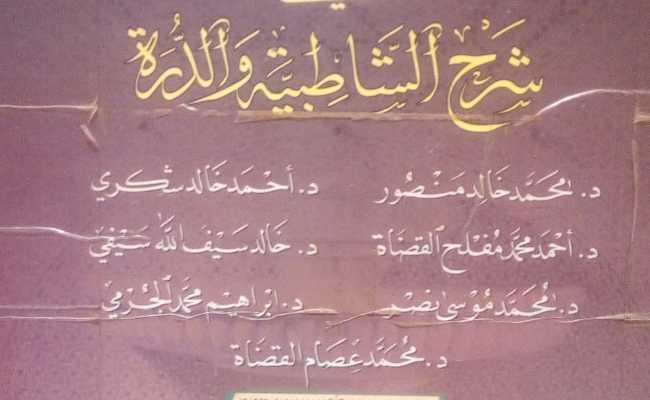 شرح الشاطبية والدرة
د. محمد خالد منصور
د. أحمد خالد شكري
د. أحمد محمد مفلح القضاة
د. خالد سيف الله سيفي
د. محمد موسى نصر
د. ابراهيم محمد الجرمي
د. محمد عصام القضاة